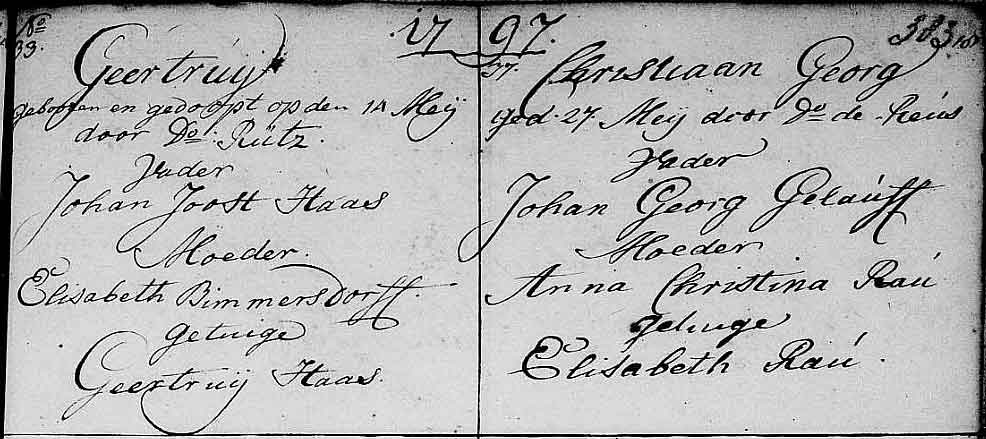 No
33.
1797.
Geertruij
gebooren en gedoopt op den 14 Meij
door Do. Rütz.
Vader
Johan Joost Haas
Moeder.
Elisabeth Bimmersdorff.
getuige
Geertruij Haas.
383
37.
Christiaan Georg
ged. 27 Meij door Do de Reús
Vader
Johan Georg Geláuff
Moeder
Anna Christina Raú
getuige
Elisabeth Raú.